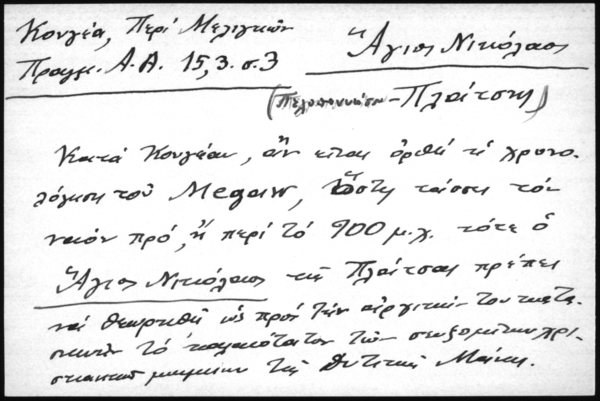 Κουγέα, Περί Μελιγκῶν
Πραγμ. Α.Α. 15, 3. σ. 3
Ἅγιος Νικόλαος
(Πελοποννήσου - Πλάτσης)
Κατά Κουγέαν, ἄν εἶναι ὀρθή ἡ χρονο-
λόγηση τοῦ Megaw, ὅστις τάσσει τόν
ναόν πρό, ἤ περί τό 900 μ.χ. τότε ὁ
Ἅγιος Νικόλαος τῆς Πλάτσας πρέπει
νά θεωρηθῆ ὡς πρός τήν ἀρχικήν του
τό παλαιότατον τῶν σωζομένων χρι-
στιανικῶν μνημείων τῆς Δυτικῆς Μάνης.